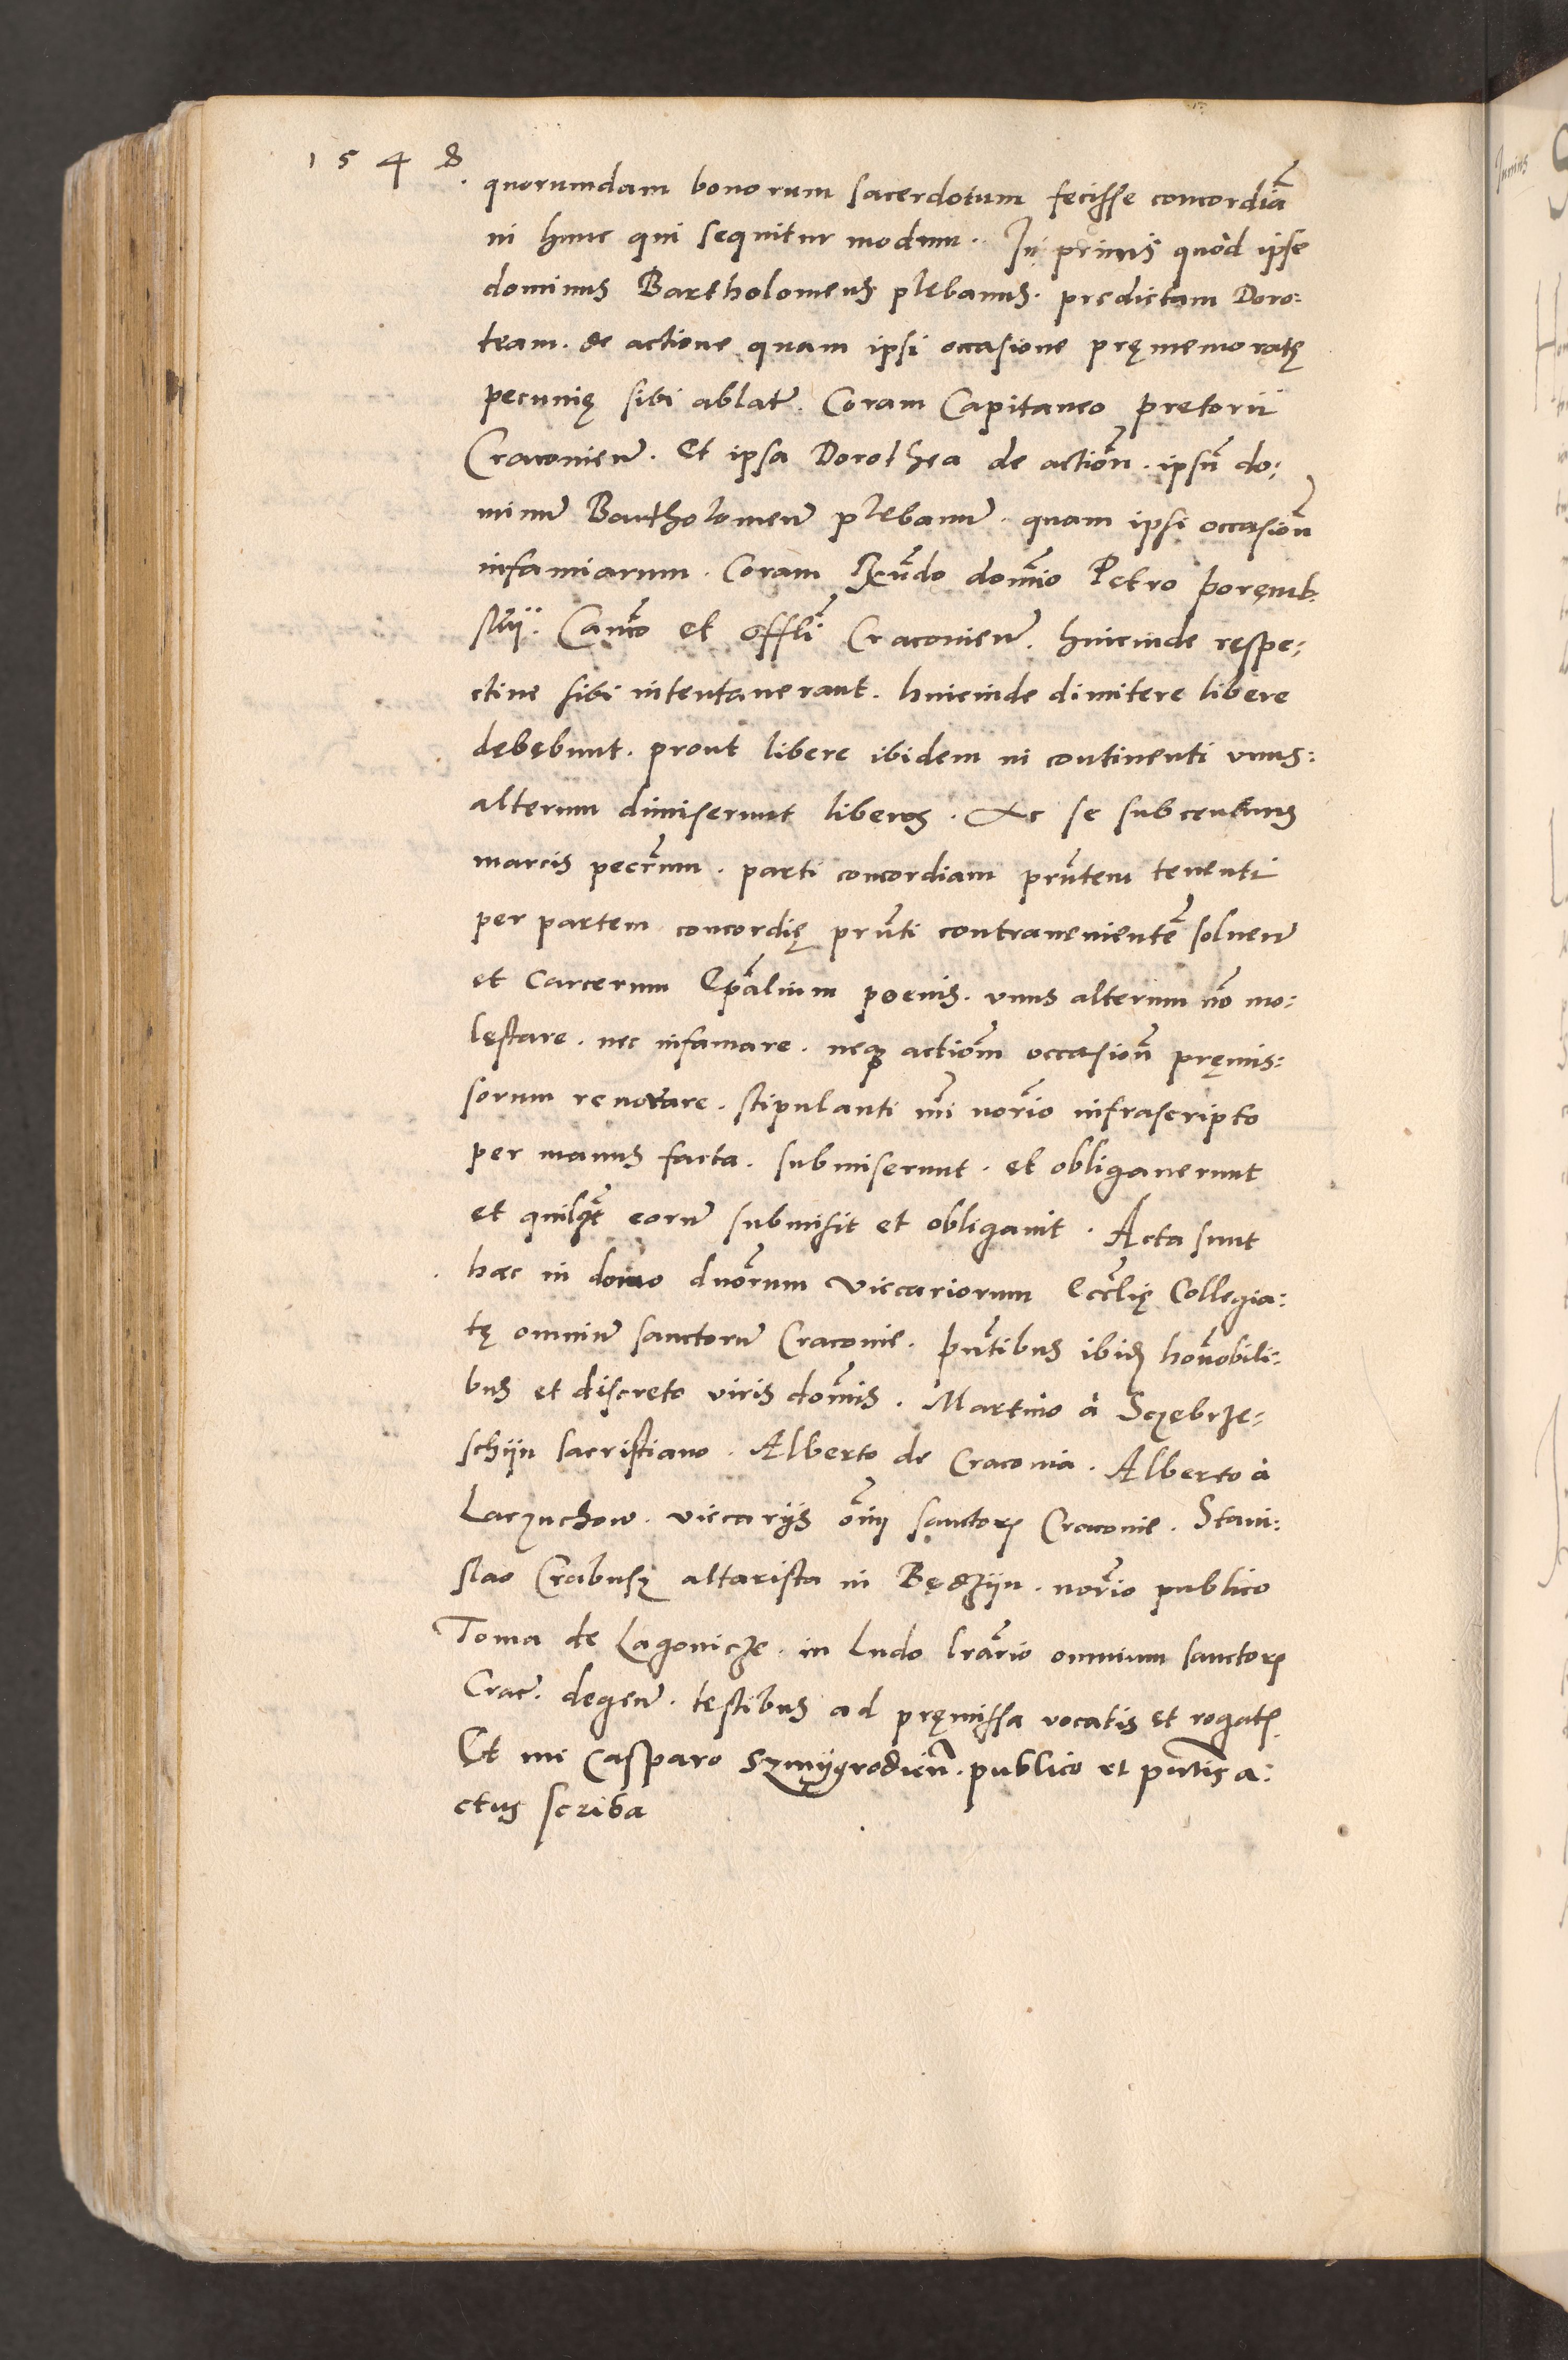 1548
quorumdam bonorum sacerdotum fecisse concordiã
in hunc qui sequitur modum. In primis quòd ipse
dominus Bartholomeus plebanus. predictam Doro:
team. de actione quam ipsi occasione pręmemoratę
pecunię sibi ablatę. Coram Capitaneo pretorii
Cracovień. Et ipsa Dorothea de actioñ. ipsũ do:
minũ Bartholomeũ plebanũ. quam ipsi occasioñ
infamiarum. Coram Rũdo domĩo Petro poremb.
skij. Cañco et offlĩ Cracovień. hincinde respe:
ctive sibi intentaverant. hincinde dimitere libere
debebunt. prout libere ibidem in continenti unus:
alterum dimiserunt liberos. Ac se sub centum
marcis pecũrum. parti concordiam prñtem tenenti
per partem concordię prñti contravenientẽ solveñ
et carcerum Epãlium poenis. unus alterum nõ mo:
lestare. nec infamare. neq actioñm occasioñ pręmis:
sorum renovare. stipulanti mĩ norĩo infrascripto
per manus facta. submiserunt. et obligaverunt
et quilꝫt eorũ submisit et obligavit. Acta sunt
hæc in domo dnõrum viccariorum Eccłię Collegia:
tę omniũ sanctorũ Cracovię. pñtibus ibiđ honõbili:
bus et discreto viris domĩs. Martino à Sczebrze:
schijn sacristiano. Alberto de Cracovia. Alberto à
Laczuchow. viccarijs oĩm sanctorꝝ Cracovię. Stani:
slao Crabusz altarista in Bedzijn. norĩo publico
Toma de Lagovicze. in Ludo lrãrio omnium sanctorꝝ
Crac̃. degeñ. testibus ad pręmissa vocatis et rogatis.
Et mi Casparo Szmijgrodień. publico et pñtis a:
ctus scriba
Junius